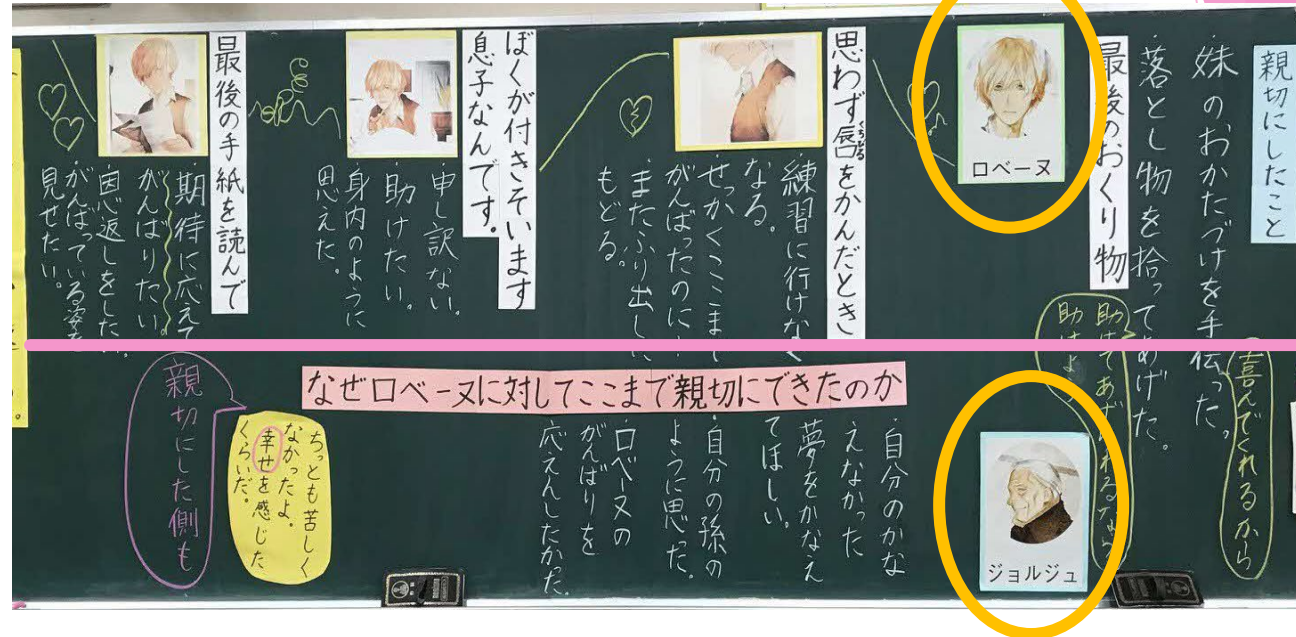 親切にしたこと
妹のおかたづけを手伝った。
喜んでくれるから
・落とし物を拾ってあげた。
最後のおくり物
ロベーヌ
思わず唇をかんだとき
くちびる
・練習に行けなく
なる。
・せっかくここまで
がんばったのに
・またふり出しに
もどる。
ぼくが付きそいます
息子なんです。
・申し訳ない。
・助けたい。
・身内のように
思えた。
最後の手紙を読んで
・期待に応えて
がんばりたい。
・恩返しをしたい。
・がんばっている姿を
見せたい。
ジョルジュ
なぜロベーヌに対してここまで親切にできたのか
・自分のかな
えなかった
夢をかなえ
てほしい。
・自分の孫の
ように思った。
・ロベーヌの
がんばりを
応えんしたかった。
ちっとも苦しく
なかったよ。
幸せを感じた
くらいだ。
親切にした側も